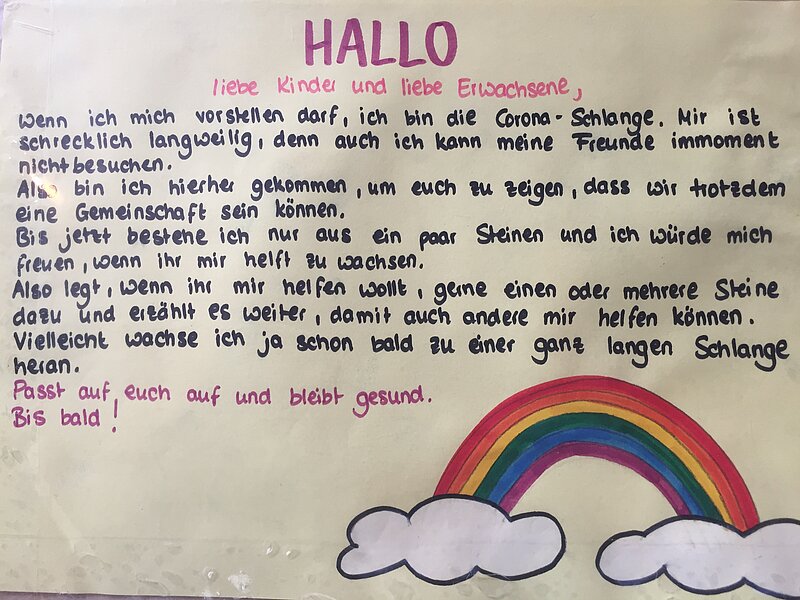 HALLO
liebe Kinder und liebe Erwachsene,
wenn ich mich vorstellen darf, ich bin die Corona-Schlange. Mir ist
schrecklich langweilig, denn auch ich kann meine Freunde immoment
nicht besuchen.
Also bin ich hierher gekommen, um euch zu zeigen, dass wir trotzdem
eine Gemeinschaft sein können.
Bis jetzt bestehe ich nur aus ein paar Steinen und ich würde mich
freuen, wenn ihr mir helft zu wachsen.
Also legt, wenn ihr mir helfen wollt, gerne einen oder mehrere Steine
dazu und erzählt es weiter, damit auch andere mir helfen können.
Vielleicht wachse ich ja schon bald zu einer ganz langen Schlange
heran.
Passt auf euch auf und bleibt gesund.
Bis bald!